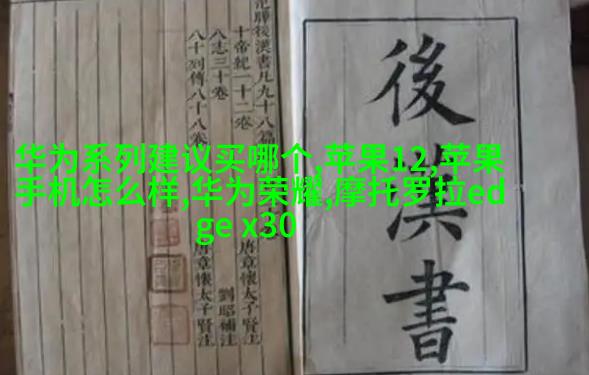 華为系列建议买哪个,苹果12,苹果
手机怎么样,华为荣耀,摩托罗拉ed
ge x30
後漢書
范曄後漢書凡九十八篇
十帝紀一十二卷
八志三十卷
八十列傳八十八卷
唐章懷太子賢注
劉昭補注
唐章懷太子賢注